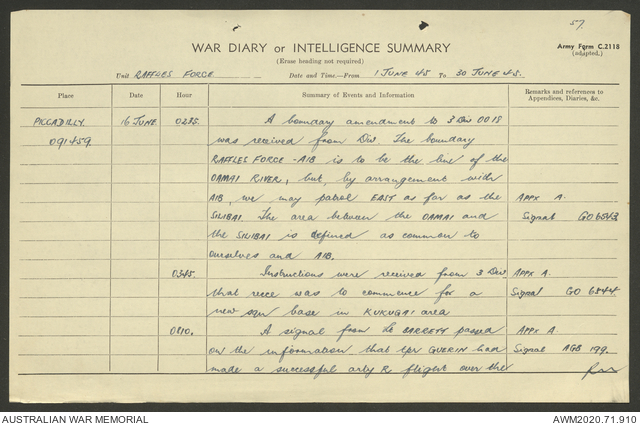 57.
WAR DIARY or INTELLIGENCE SUMMARY
Army Form C.2118
(adapted.)
(Erase heading not required)
Unit RAFFLES FORCE Date and Time—From 1 JUNE 45 To 30 JUNE 45.
Place Date Hour Summary of Events and Information Remarks and references to Appendices, Diaries, &c.
PICCADILLY 16 JUNE A boundary amendment to 3 Div
091459 was received from Div. The boundary
RAFFLES FORCE - AIB is to be the line of the
DAMAI RIVER, but, by arrangement with
AIB, we may patrol EAST as far as the APPX A.
SILIBAI. The area between the DAMAI and Signal GO6543
the SILIBAI is defined as common to
ourselves and AIB.
0345. Instructions were received from 3 Div APPX A.
that recce was to commence for a Signal GO 6544.
new sqn base in KUKUGAI area
0810. A signal from Lt BARRETT passed APPX A.
on the information that tpr GUERIN had Signal AGB 199.
made a successful arty R flight over the
AUSTRALIAN WAR MEMORIAL AWM2020.71.910